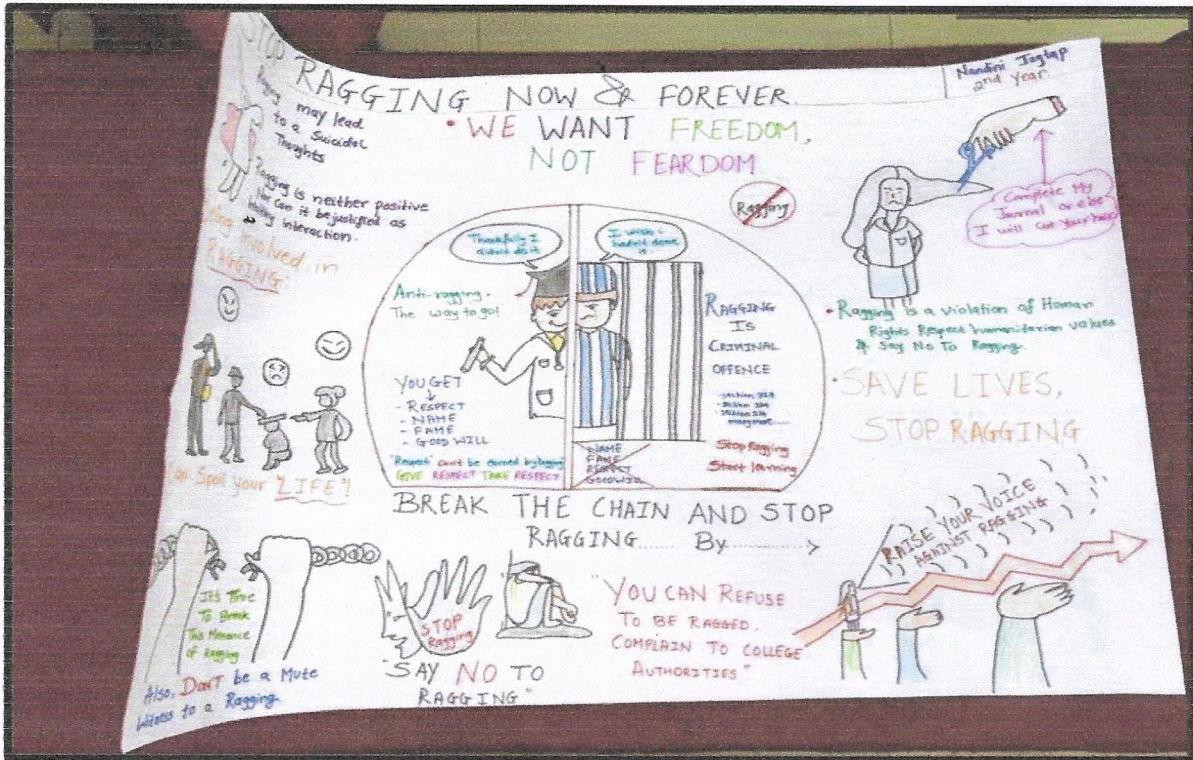 STOP RAGGING NOW & FOREVER
Nandini Jagtap
2nd Year
• WE WANT FREEDOM,
NOT FEARDOM
Ragging may lead
to a Suicidal
Thoughts
Ragging is neither positive
Nor can it be justified as
interaction.
involved in
RAGGING
You Spoil your "LIFE"!
Ragging
Thankfully I
didn't do it
I wish i
hadn't done
it
Anti-ragging.
The way to go!
YOU GET
- RESPECT
- NAME
- FAME
- GOOD WILL
"Respect" can't be earned by ragging
GIVE RESPECT TAKE RESPECT
RAGGING
IS
CRIMINAL
OFFENCE
NAME
FAME
RESPECT
GOODWILL
Stop Ragging
Start learning
Complete My
Journal or else
I will cut your hair
• Ragging is a violation of Human
Rights Respect humanitarian values
& Say No To Ragging.
• SAVE LIVES,
STOP RAGGING
BREAK THE CHAIN AND STOP
RAGGING...... By
It's Time
To Break
This Menance
of Ragging
Also, DON'T be a Mute
Witness to a Ragging.
STOP
Ragging
"SAY NO TO
RAGGING"
"YOU CAN REFUSE
TO BE RAGGED.
COMPLAIN TO COLLEGE
AUTHORITIES"
RAISE YOUR VOICE
AGAINST RAGGING